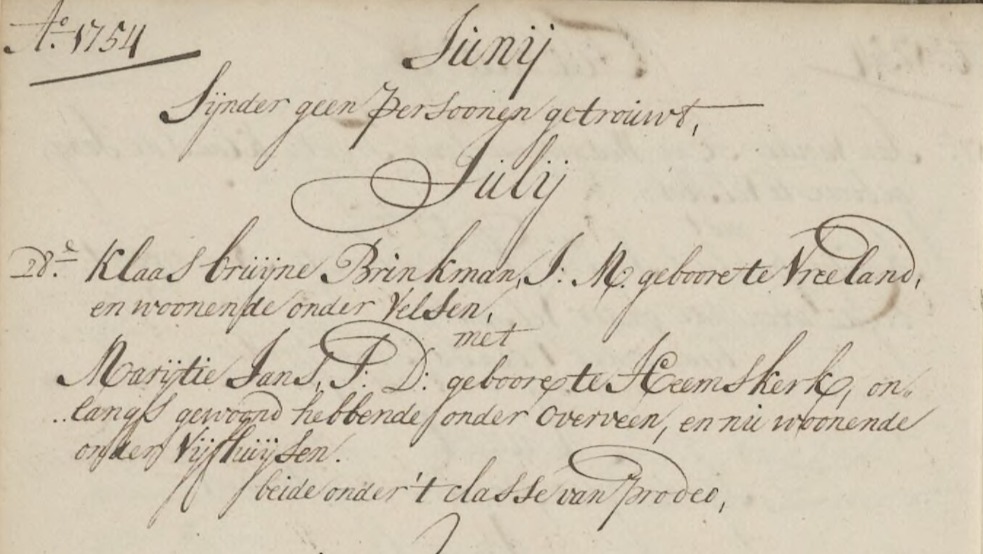 Ao. 1754
Junij
Sijnder geen Persoonen getrouwt,
Julij
28e. Klaas bruijne Brinkman, J: M. geboore te Vreeland,
en woonende onder Velsen,
met
Marijtie Jans, J: D: geboore te Heemskerk, on-
langs gewoond hebbende onder Overveen, en nu woonende
onder Vijfhuijsen.
beide onder 't classe van Prodeo,